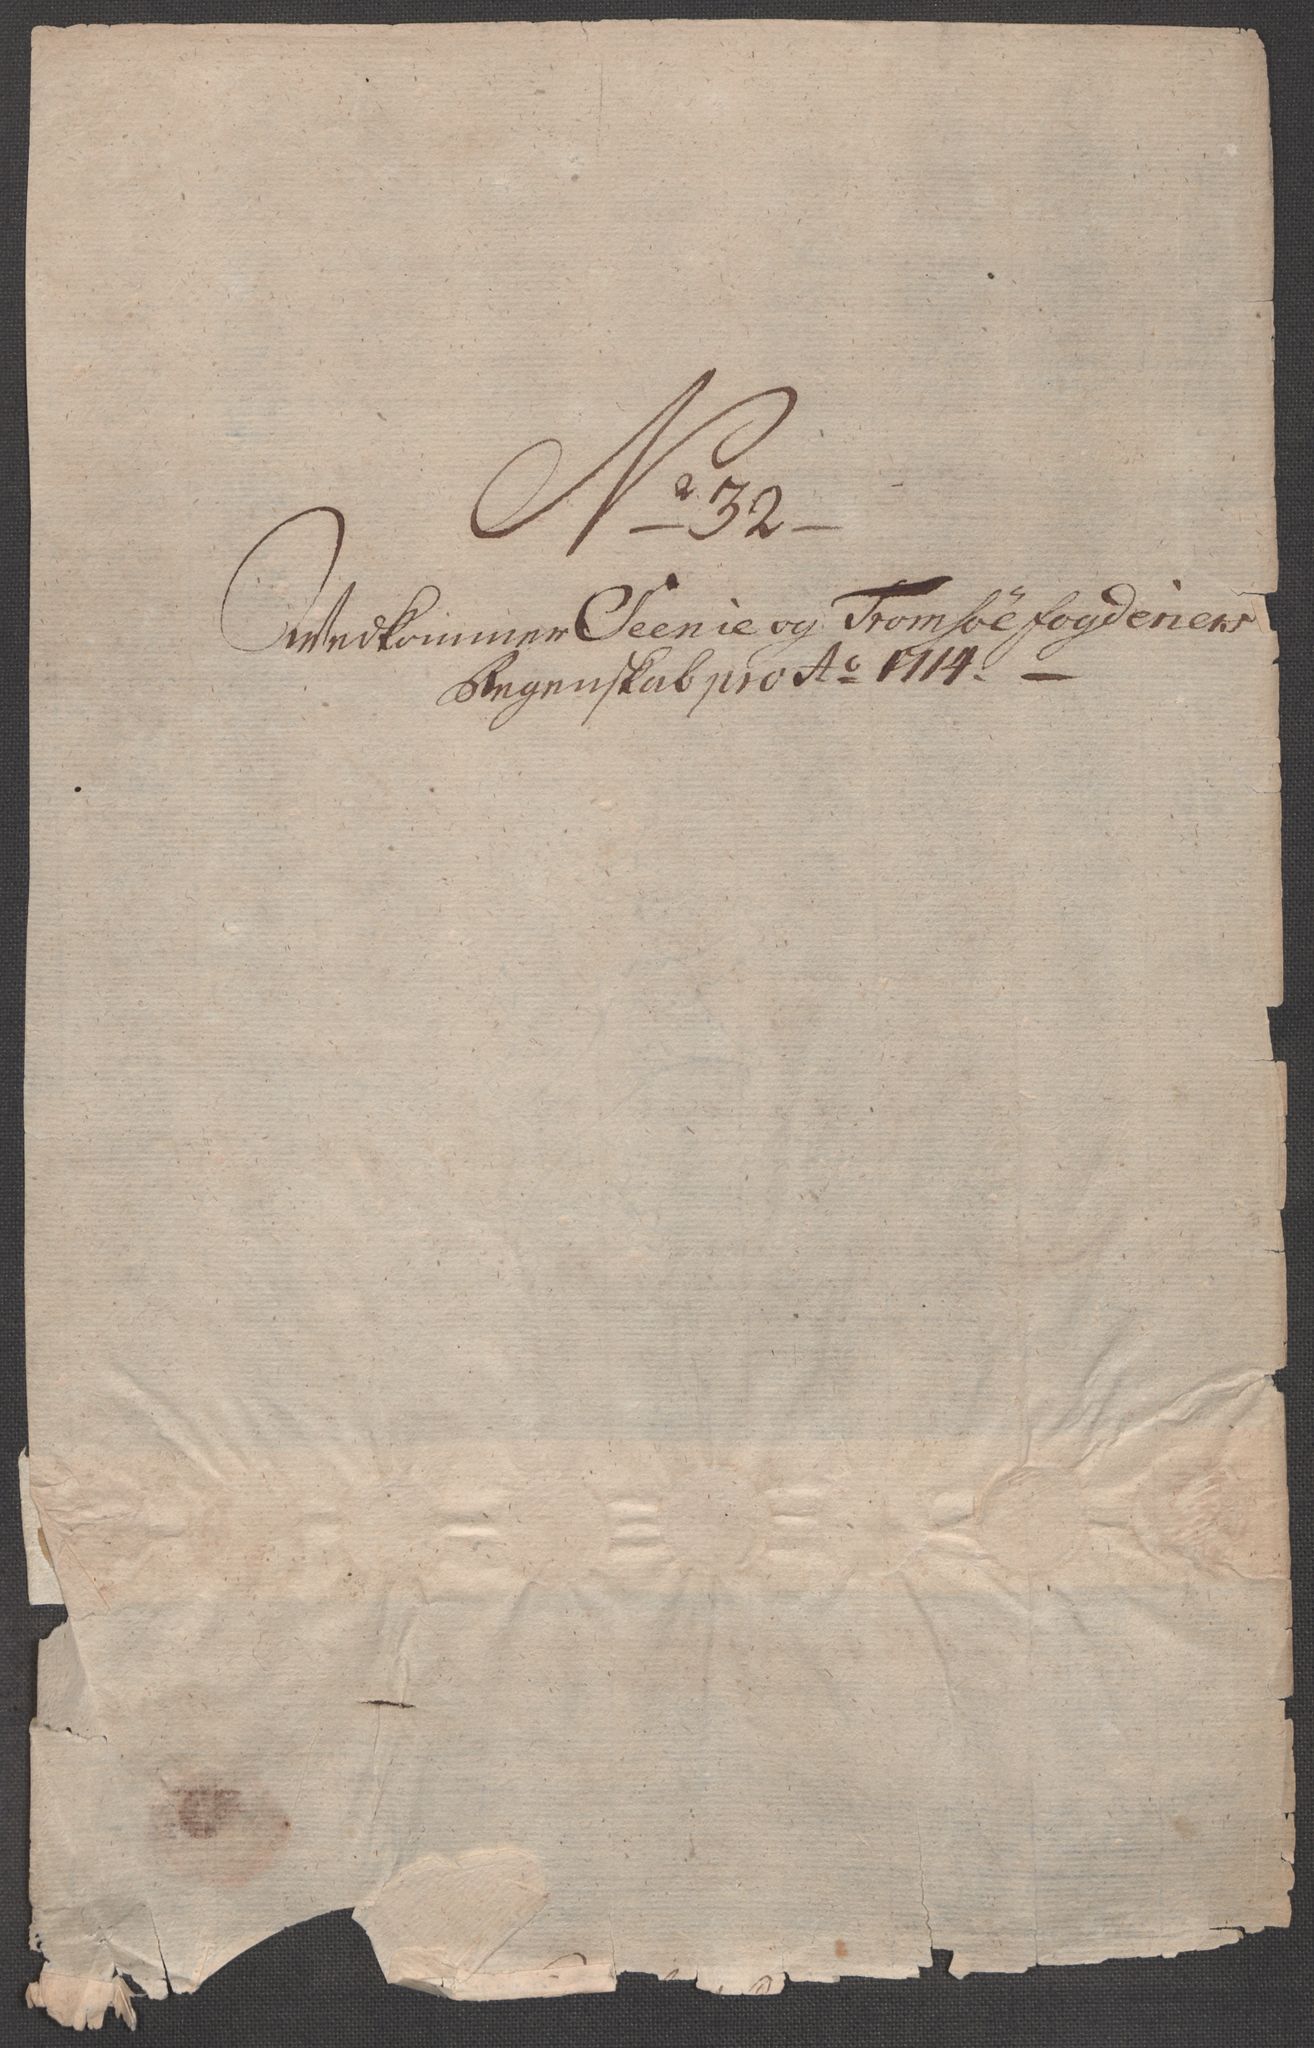 No 32
Vedkommer Seenie og Tromsöe fogderiers
Regenskab pro Ao 1714.